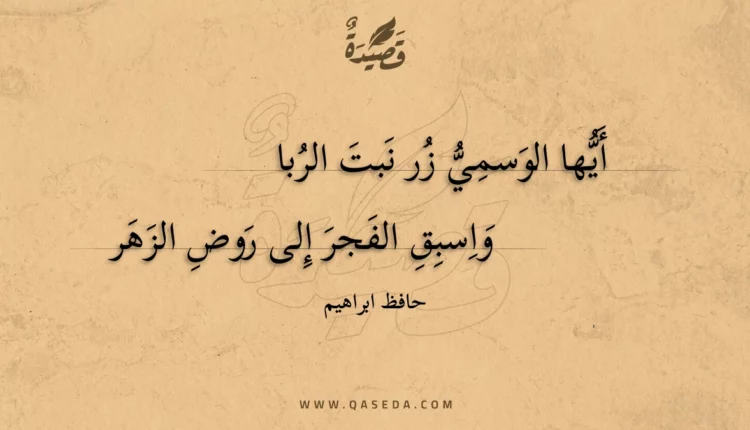 قَصِيْدَةٌ
أَيُّها الوَسمِيُّ زُر نَبتَ الرُبا
وَاِسبِقِ الفَجرَ إِلى رَوضِ الزَهَر
حافظ ابراهيم
WWW.QASEDA.COM